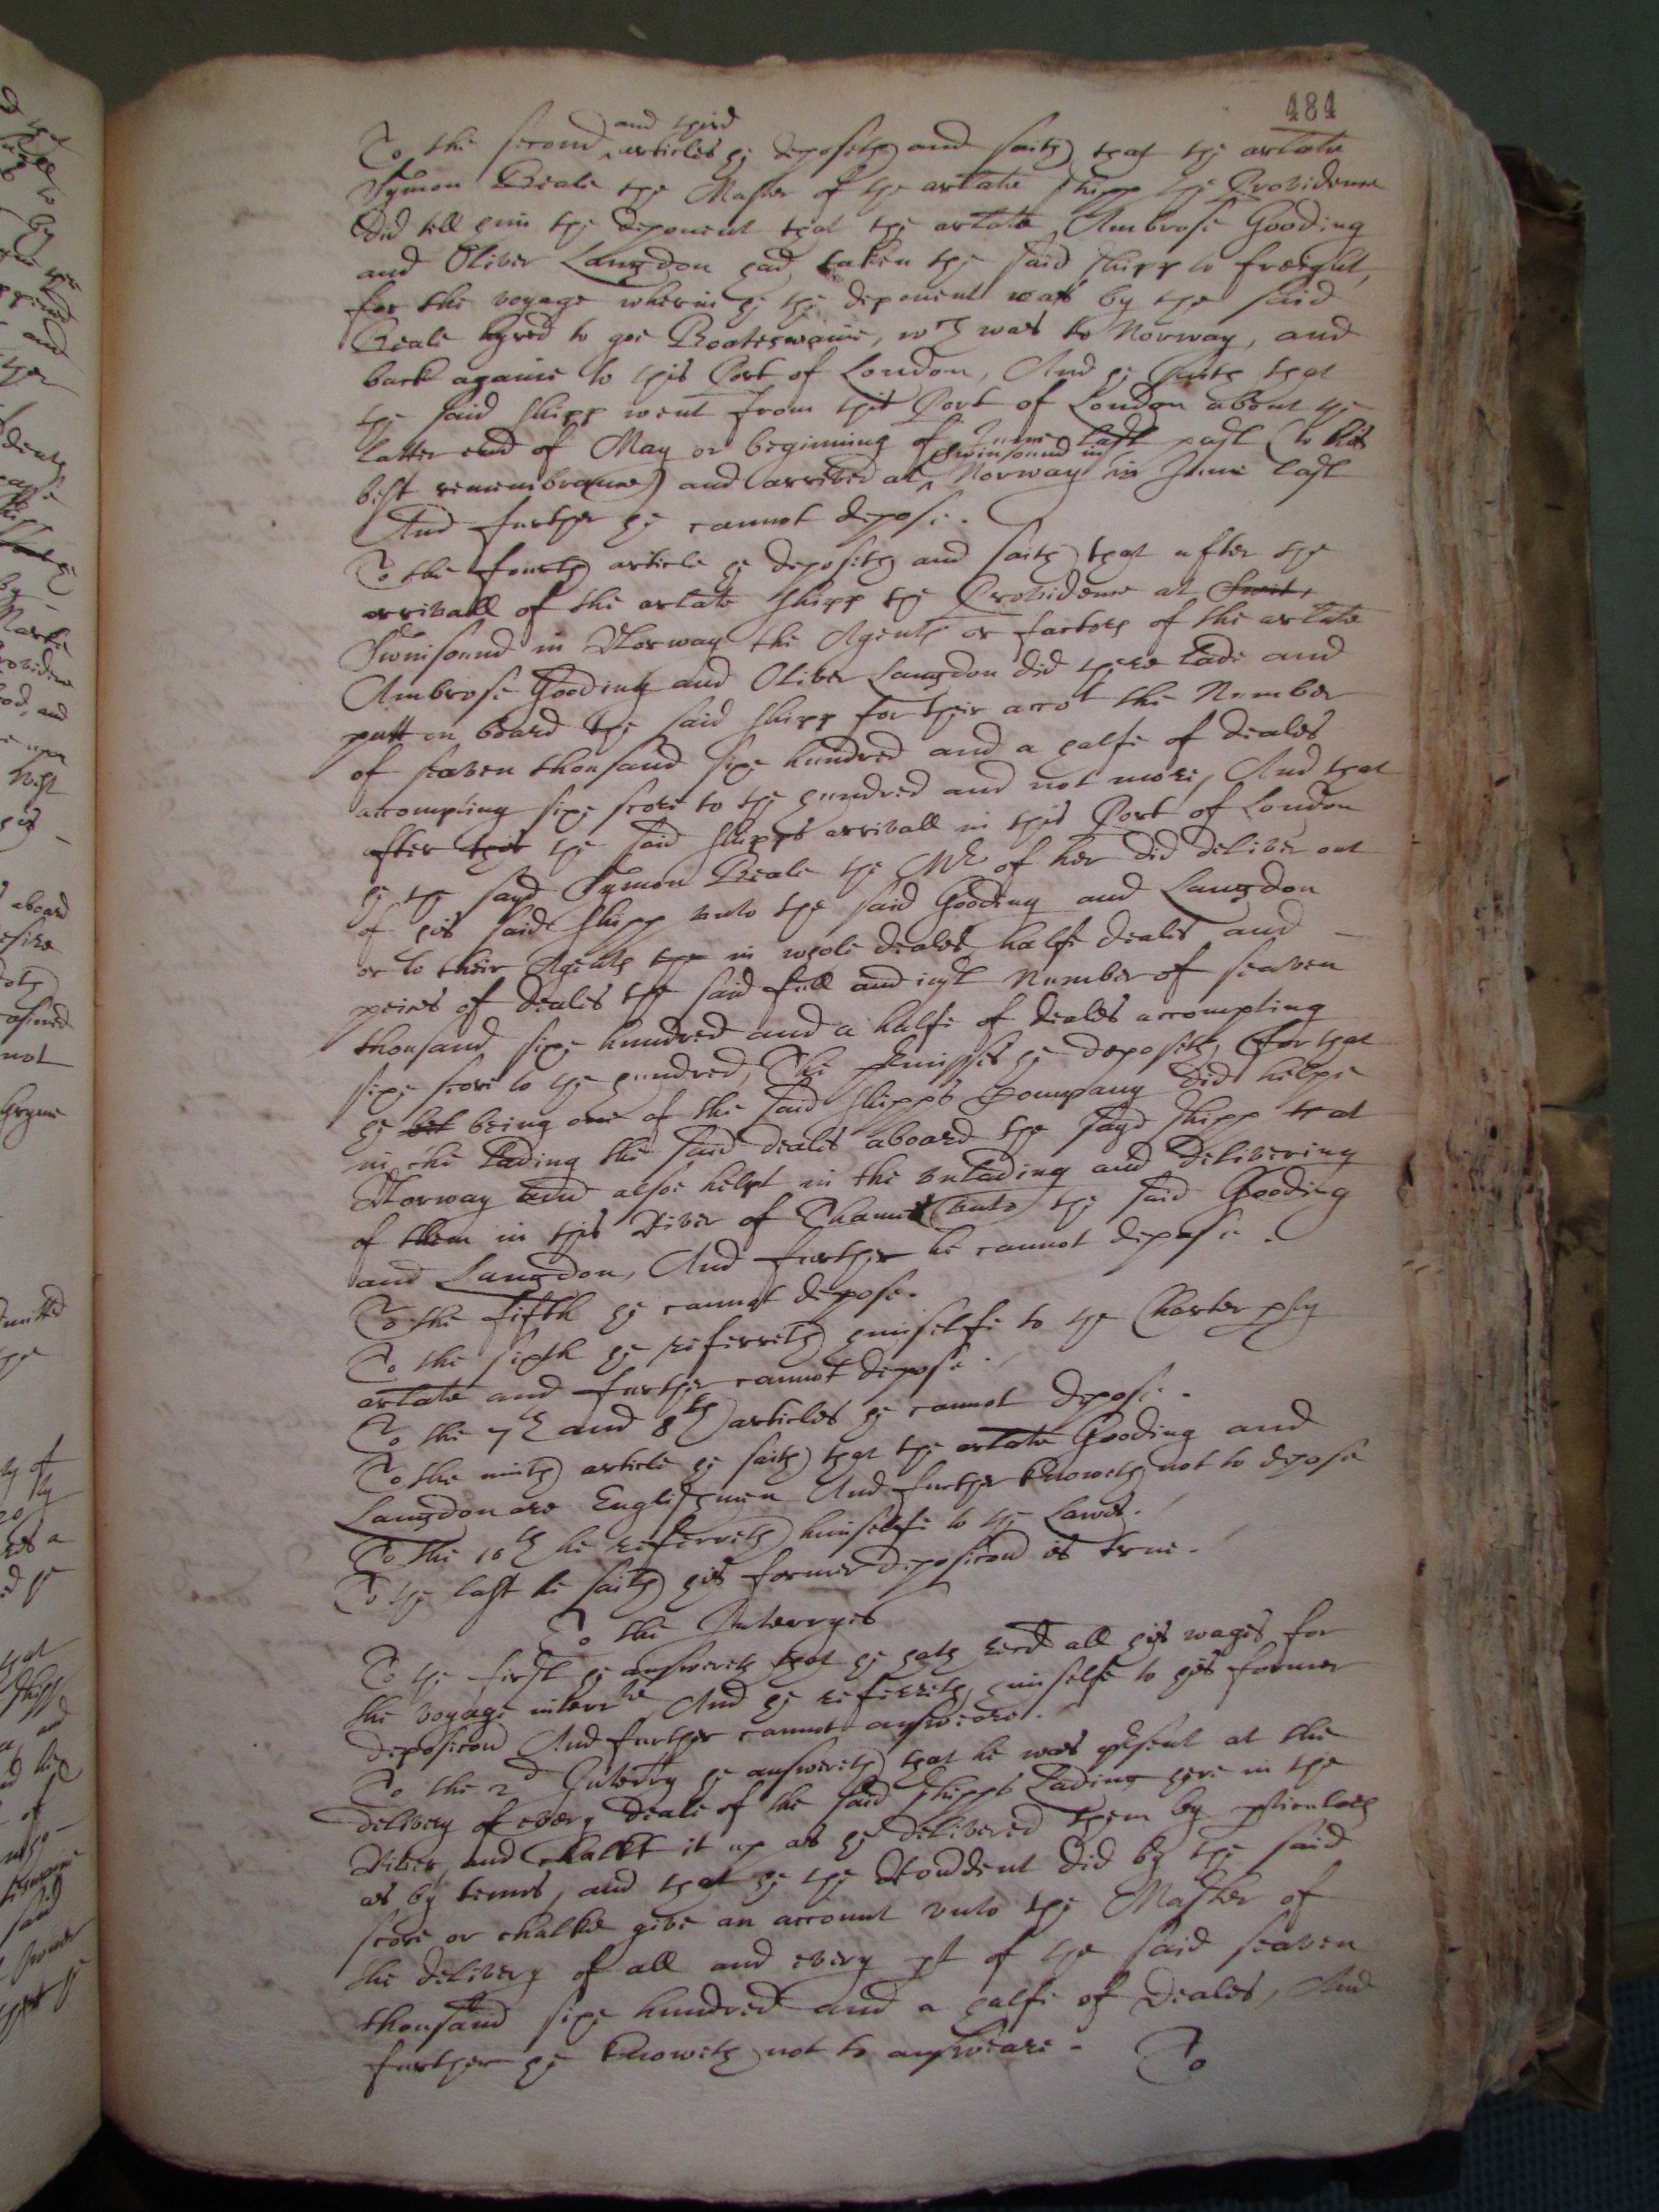 484
To the second and third articles he deposeth and saith that the arlate
Symon Beale the Master of the arlate shipp the Providence
did tell him the deponent that the arlate Ambrose Gooding
and Oliver Langdon had taken the said shipp to freight,
for the voyage wherin he the deponent was by the said
Beale hyred to goe Boateswaine, wch was to Norway, and
back againe to this Port of London, And he saith that
the said shipp went from this Port of London about the
latter end of May or beginning of June last past (to his
best remembrance) and arrived at Swinsound in Norway in June last
And further he cannot depose.
To the fourth article he deposeth and saith that after the
arrivall of the arlate shipp the Providence at
Swinsound in Norway the Agents or factors of the arlate
Ambrose Gooding and Oliver Langdon did there lade and
putt on board the said shipp for their accot the Number
of seaven thousand sixe hundred and a halfe of deales
accompting sixe score to the hundred and not more, And that
after this the said shipps arrivall in this Port of London
he the sayd Symon Beale the Mr of her did deliver out
of his said shipp unto the said Gooding and Langdon
or to their Agents the in whole deales halfe deales and
peices of deales the said full and just Number of seaven
thousand sixe hundred and a halfe of deales accompting
sixe score to the hundred, The premisses he deposeth for that
he being one of the said shipps Company did helpe
in the lading the said deales aboard the sayd shipp at
Norway and alsoe helpt in the unlading and delivering
of them in this River of Thames unto the said Gooding
and Langdon, And further he cannot depose.
To the fifth he cannot depose.
To the sixth he referreth himselfe to the Charter pty
arlate and further cannot depose.
To the 7th and 8th articles he cannot depose.
To the ninth article he saith that the arlate Gooding and
Langdon are Englishmen And further knoweth not to depose
To the 10th he referreth himselfe to the Lawe.
To the last he saith his former deposicon is true.
To the Interryes
To the first he answereth that he hath recd all his wages for
the voyage interrte And he referreth himselfe to his former
deposicon And further cannot answeare.
To the 2d Interry he answereth that he was present at the
delivery of every deale of the said shipps lading here in the
River, and chalkt it up as he delivered them by pticulers
as by tennes, and that he the Rondent did by the said
score or chalke give an account unto the Master of
the delivery of all and every pt of the said seaven
thousand sixe hundred and a halfe of deales, And
further he knoweth not to answeare.
To